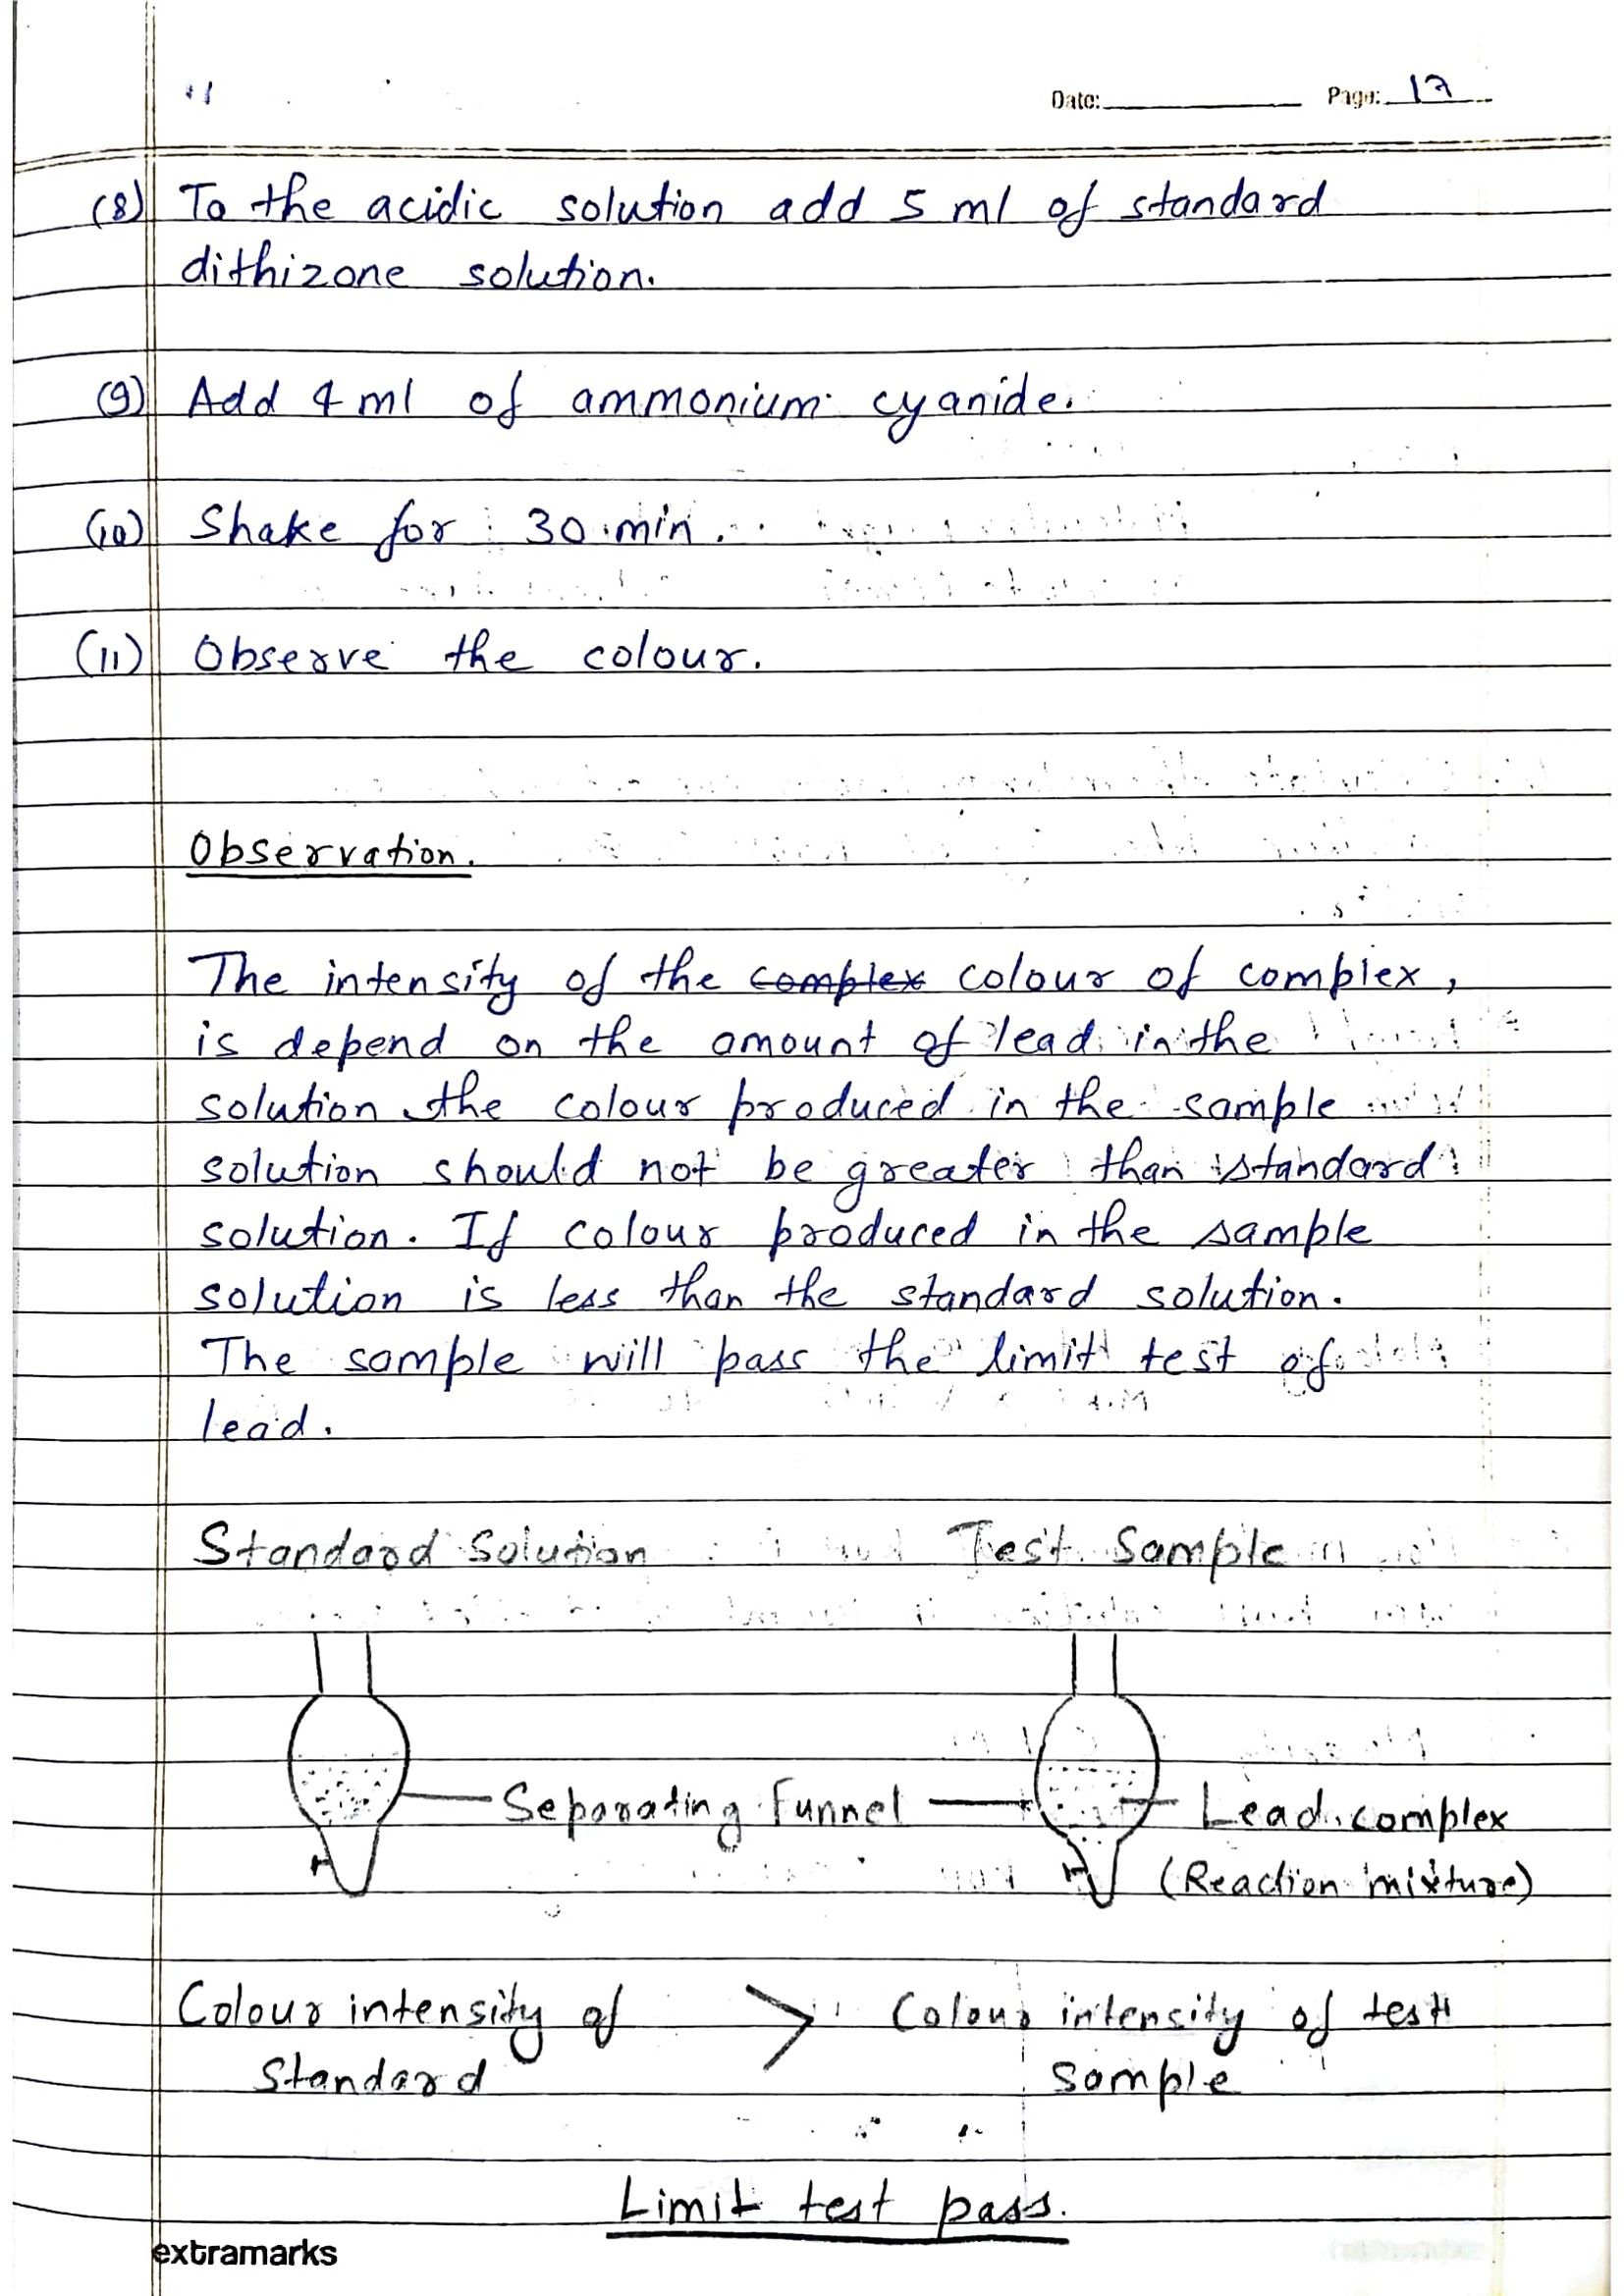 Date: Page: 17
(8) To the acidic solution add 5 ml of standard
dithizone solution.
(9) Add 4 ml of ammonium cyanide.
(10) Shake for 30 min.
(11) Observe the colour.
Observation.
The intensity of the complex colour of complex,
is depend on the amount of lead in the
solution the colour produced in the sample
solution should not be greater than standard
solution. If colour produced in the sample
solution is less than the standard solution.
The sample will pass the limit test of
lead.
Standard Solution Test Sample
Separating Funnel Lead complex
(Reaction mixture)
Colour intensity of > Colour intensity of test
Standard Sample
Limit test pass.
extramarks